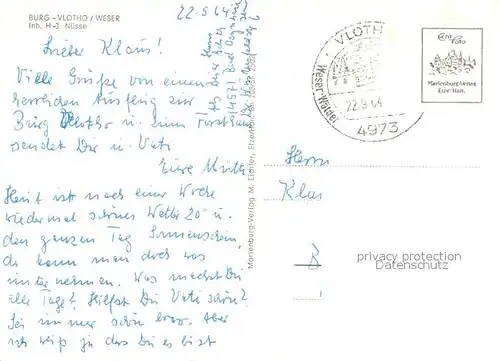 BURG - VLOTHO / WESER
Inh. H.-J. Nüsse
22.9.64
Lieber Klaus!
Viele Grüße von einem
herrlichen Ausflug zur
Burg Vlotho u. zum Forsthaus
sendet Dir u. Vati
Eure Mutti
Heut ist nach einer Woche
wiedermal schönes Wetter 20° u.
den ganzen Tag Sonnenschein,
da kann man doch was
unternehmen. Was machst Du
alle Tage? Hilfst Du Vati schön?
Sei immer schön brav. Aber
ich weiß ja das Du es bist
Marienburg-Verlag M. Eichler, Elze/Hann.
VLOTHO
Weser-Wiehen
22.9.64
4973
Echt Foto
Marienburg-Verlag
Elze/Hann.
Herrn
Klaus
B
privacy protection
Datenschutz